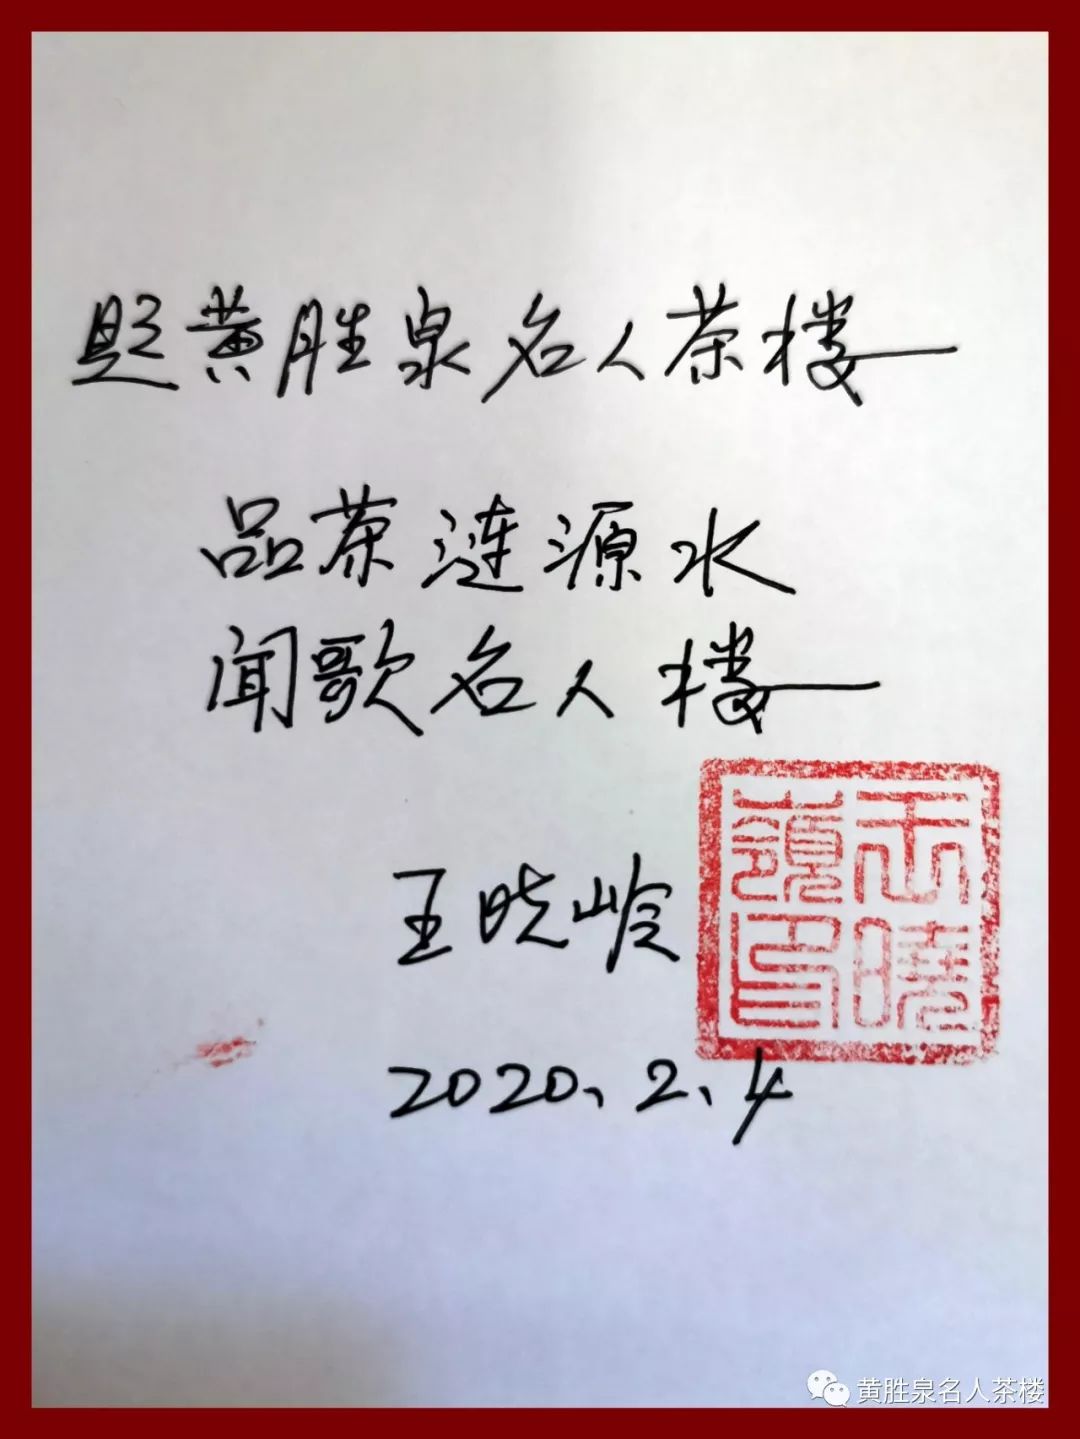 题黄胜泉名人茶楼
品茶涟源水
闻歌名人楼
王晓岭
王曉嶺印
2020、2、4
黄胜泉名人茶楼